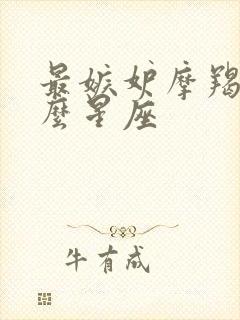 最嫉妒摩羯
麼星座
牛有成